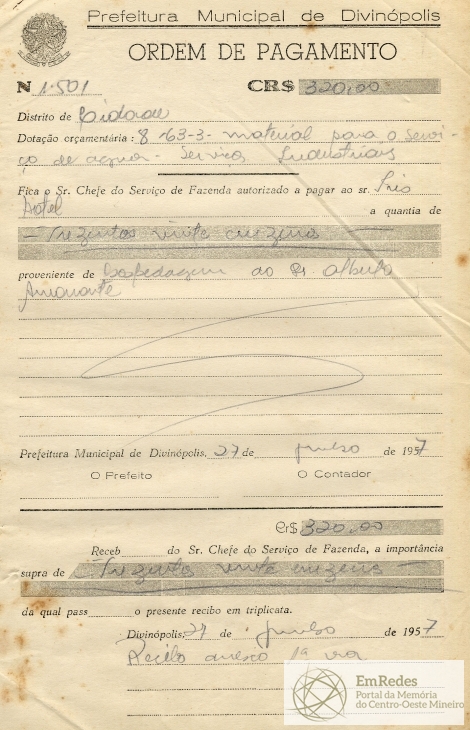 Prefeitura Municipal de Divinópolis
ORDEM DE PAGAMENTO
N 1.501 CR$ 320,00
Distrito de Cidade
Dotação orçamentária: 8-63-3- material para o Servi-
ço de agua - Serviços Industriais
Fica o Sr. Chefe do Serviço de Fazenda autorizado a pagar ao sr.
Hotel a quantia de
- Trezentos vinte cruzeiros -
proveniente de hospedagem do Sr. Alberto
Amarante
Prefeitura Municipal de Divinópolis, 27 de junho de 1957
O Prefeito O Contador
Cr$ 320,00
Receb do Sr. Chefe do Serviço de Fazenda, a importância
supra de - Trezentos vinte cruzeiros -
da qual pass o presente recibo em triplicata.
Divinópolis, 27 de junho de 1957
Recibo anexo 1ª via
EmRedes
Portal da Memória
do Centro-Oeste Mineiro